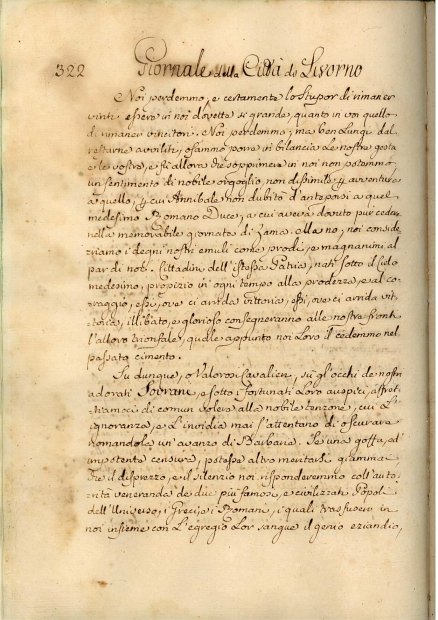 322 Giornale della Città di Livorno
Noi perdemmo, e certamente lo stupor di rimaner
vinti essere in noi dovette sì grande, quanto in voi quello
di rimaner vincitori. Noi perdemmo, ma ben lungi dal
restarne avviliti, osammo porre in bilancia le nostre gesta
e le vostre, e fu allora che sopprimere in noi non potemmo
un sentimento di nobile orgoglio, non dissimile per avventura
a quello, per cui Annibale non dubitò d'anteporsi a quel
medesimo Romano Duce, a cui aveva dovuto pur cedere
nella memorabile giornata di Zama. Ma no, noi conside
riamo i degni nostri emuli come prodi, e magnanimi al
par di noi. Cittadini dell'istessa Patria, nati sotto il Cielo
medesimo, propizio in ogni tempo alla prodezza, e al co
raggio, essi, ove ci arrida vittoria, essi, ove ci arrida vit
toria, illibato, e glorioso consegneranno alle nostre fronti
l'alloro trionfale, quale appunto noi Loro il cedemmo nel
passato cimento.
Su dunque, o Valorosi Cavalieri, su gl'occhi de nostri
adorati Sovrani, e sotto i fortunati Loro auspicj, affret
tiamoci di comun volere alla nobile tenzone, cui l'i
gnoranza, e l'invidia mai s'attentano di oscurare
nomandola un'avanzo di Barbarie. Se una goffa, ed
impotente censura, potesse altro meritarsi giammai
che il disprezzo, e il silenzio noi risponderemmo coll'auto
rità veneranda de due più famosi, e civilizzati Popoli
dell'Universo, i Greci, e i Romani, i quali trasfusero in
noi insieme con l'egregio Lor sangue il genio eziandio,